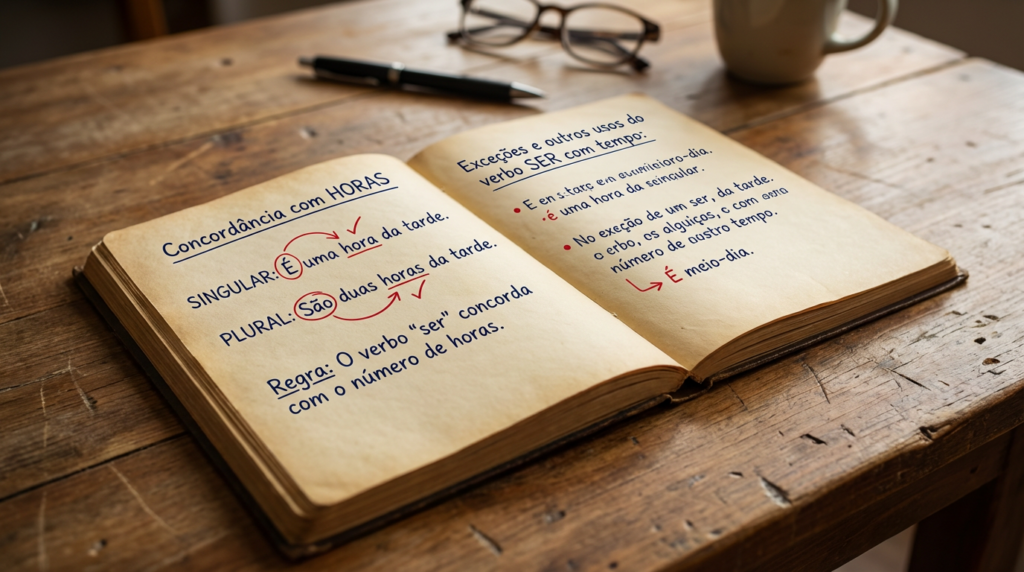 Concordância com HORAS
SINGULAR: É uma hora da tarde.
PLURAL: São duas horas da tarde.
Regra: O verbo “ser” concorda
com o número de horas.
Exceções e outros usos do
verbo SER com tempo:
• E
• é uma hora da
• No exeção de um ser, da tarde.
o erbo, os algúiças, o com
número de austro tempo.
É meio-dia.